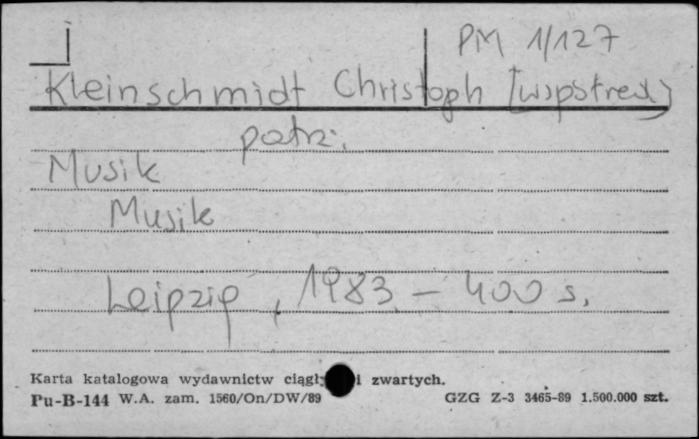 PM 1/127
Kleinschmidt Christoph [współred.]
patrz:
Musik
Musik
Leipzig, 1983 – 400 s.
Karta katalogowa wydawnictw i zwartych.
Pu-B-144 W.A. zam. 1560/On/DW/89 GZG Z-3 3465-89 1.500.000 szt.